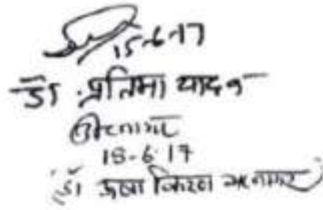 15-6-17
डॉ. प्रतिमा यादव
18-6-17
(डॉ ऊषा किरण भटनागर)